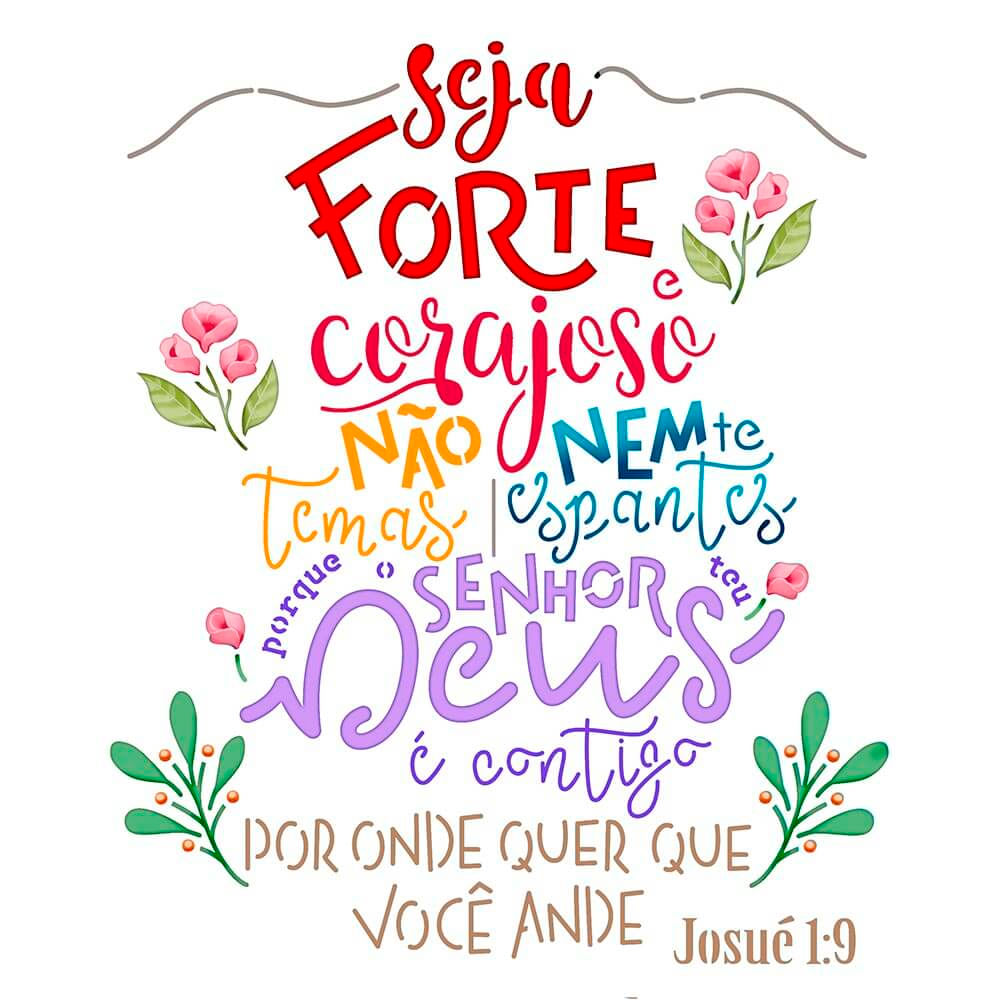 seja
FORTE
e
corajoso
NÃO
temas
NEM te
espantes
porque o SENHOR teu
Deus
é contigo
POR ONDE QUER QUE
VOCÊ ANDE
Josué 1:9